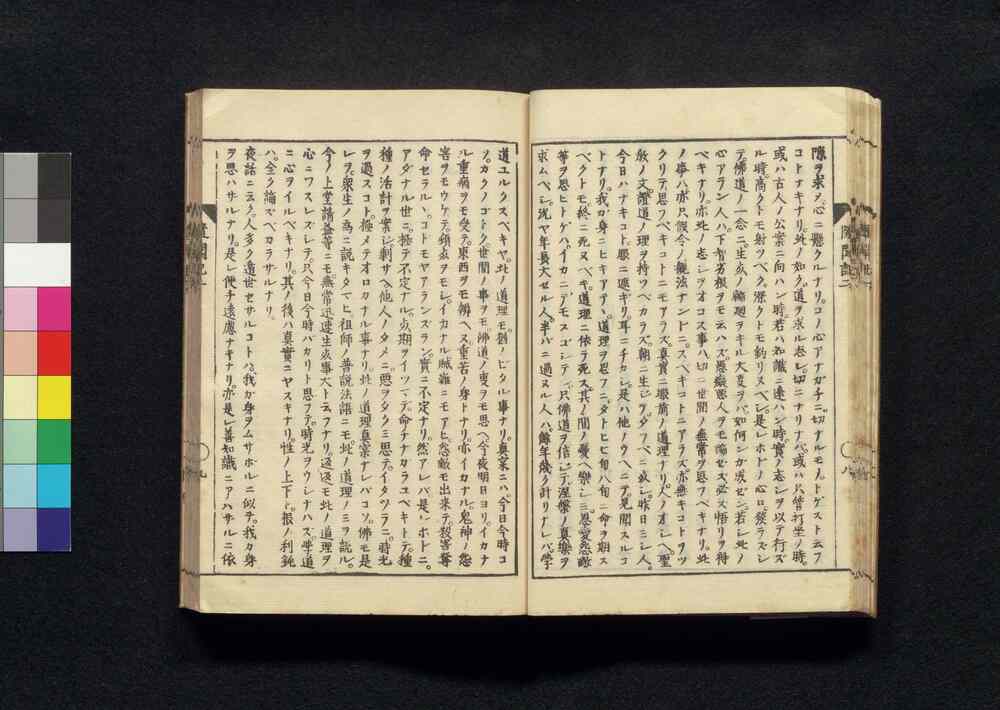 隙ヲ求ノ心ニ懸クルナリ。コノ心アナガチニ切ナルモノトゲスト云フ
コトナキナリ。此ノ如ク道ヲ求ル志シ切ニナリナバ。或ハ只管打坐ノ時。
或ハ古人ノ公案ニ向ハン時。若ハ知識ニ逢ハン時。實ノ志シヲ以テ行ズ
ル時。高クトモ射ツベク。深クトモ釣リヌベシ。是レホトノ心ロ發ラズシ
テ。佛道ノ一念ニ生死ノ輪廻ヲキル大事ヲバ如何ンガ成ゼン。若シ此ノ
心アラン人ハ下智劣根ヲモ云ハズ愚癡惡人ヲモ論ゼズ必ズ悟リヲ得
ベキナリ。亦此ノ志シヲオコス事ハ切ニ世間ノ無常ヲ思フベキナリ。此
ノ事ハ亦只假令ノ觀法ナンドニスベキコトニアラズ。亦無キコトヲツ
クリテ思フベキコトニモアラズ。真實ニ眼前ノ道理ナリ。人ノオシヘ聖
敎ノ文證道ノ理ヲ待ツベカラズ。朝ニ生ジテ夕フベニ死シ。昨日ミシ人。
今日ハナキコト。眼ニ遮ギリ耳ニチカシ。是ハ他ノウヘニテ見聞スルコ
トナリ。我ガ身ニヒキアテヽ道理ヲ思フニ。タトヒ七旬八旬ニ命ヲ期ス
ベクトモ。終ニ死ヌベキ道理ニ依テ死ス。其ノ間ノ憂ヘ樂シミ恩愛怨敵
等ヲ思ヒトゲバ。イカニテモスゴシテン。只佛道ヲ信ジテ涅槃ノ真樂ヲ
求ムベシ。況ヤ年長大セル人半バニ過ヌル人ハ。餘年幾ク計リナレバ學
道ユルクスベキヤ。此ノ道理モ猶ノビタル事ナリ。真實ニハ。今日今時コ
ソ。カクノゴトク世間ノ事ヲモ佛道ノ事ヲモ思ヘ。今夜明日ヨリ。イカナ
ル重病ヲモ受テ。東西ヲモ辨ヘズ。重苦ノ身トナリ。亦イカナル鬼神ノ怨
害ヲモウケテ。頓死ヲモシ。イカナル賊難ニモアヒ。怨敵モ出來テ。殺害奪
命セラルヽコトモヤアランズラン。實ニ不定ナリ。然アレバ是レホドニ。
アダナル世ニ。極テ不定ナル死期ヲイツマデ。命ナガラユベキトテ。種
種ノ活計ヲ案ジ。剰サヘ他人ノタメニ悪ヲタクミ思テ。イタヅラニ。時光
ヲ過スコト。極メテオロカナル事ナリ。此ノ道理真實ナレバコソ。佛モ是
レヲ衆生ノ為ニ説キタマヒ。祖師ノ普説法語ニモ。此ノ道理ノミヲ説ル。
今ノ上堂請益等ニモ。無常迅速生死事大ト云フナリ。返返モ。此ノ道理ヲ
心ニワスレズシテ。只今日今時バカリト思フテ。時光ヲウシナハズ。學道
ニ心ヲイルベキナリ。其ノ後ハ真實ニヤスキナリ。性ノ上下ト根ノ利鈍
ハ。全ク論ズベカラザルナリ。
夜話ニ云ク。人多ク遁世セザルコトハ。我ガ身ヲムサボルニ似テ。我ガ身
ヲ思ハザルナリ。是レ便チ遠慮ナキナリ。亦是レ善知識ニアハザルニ依